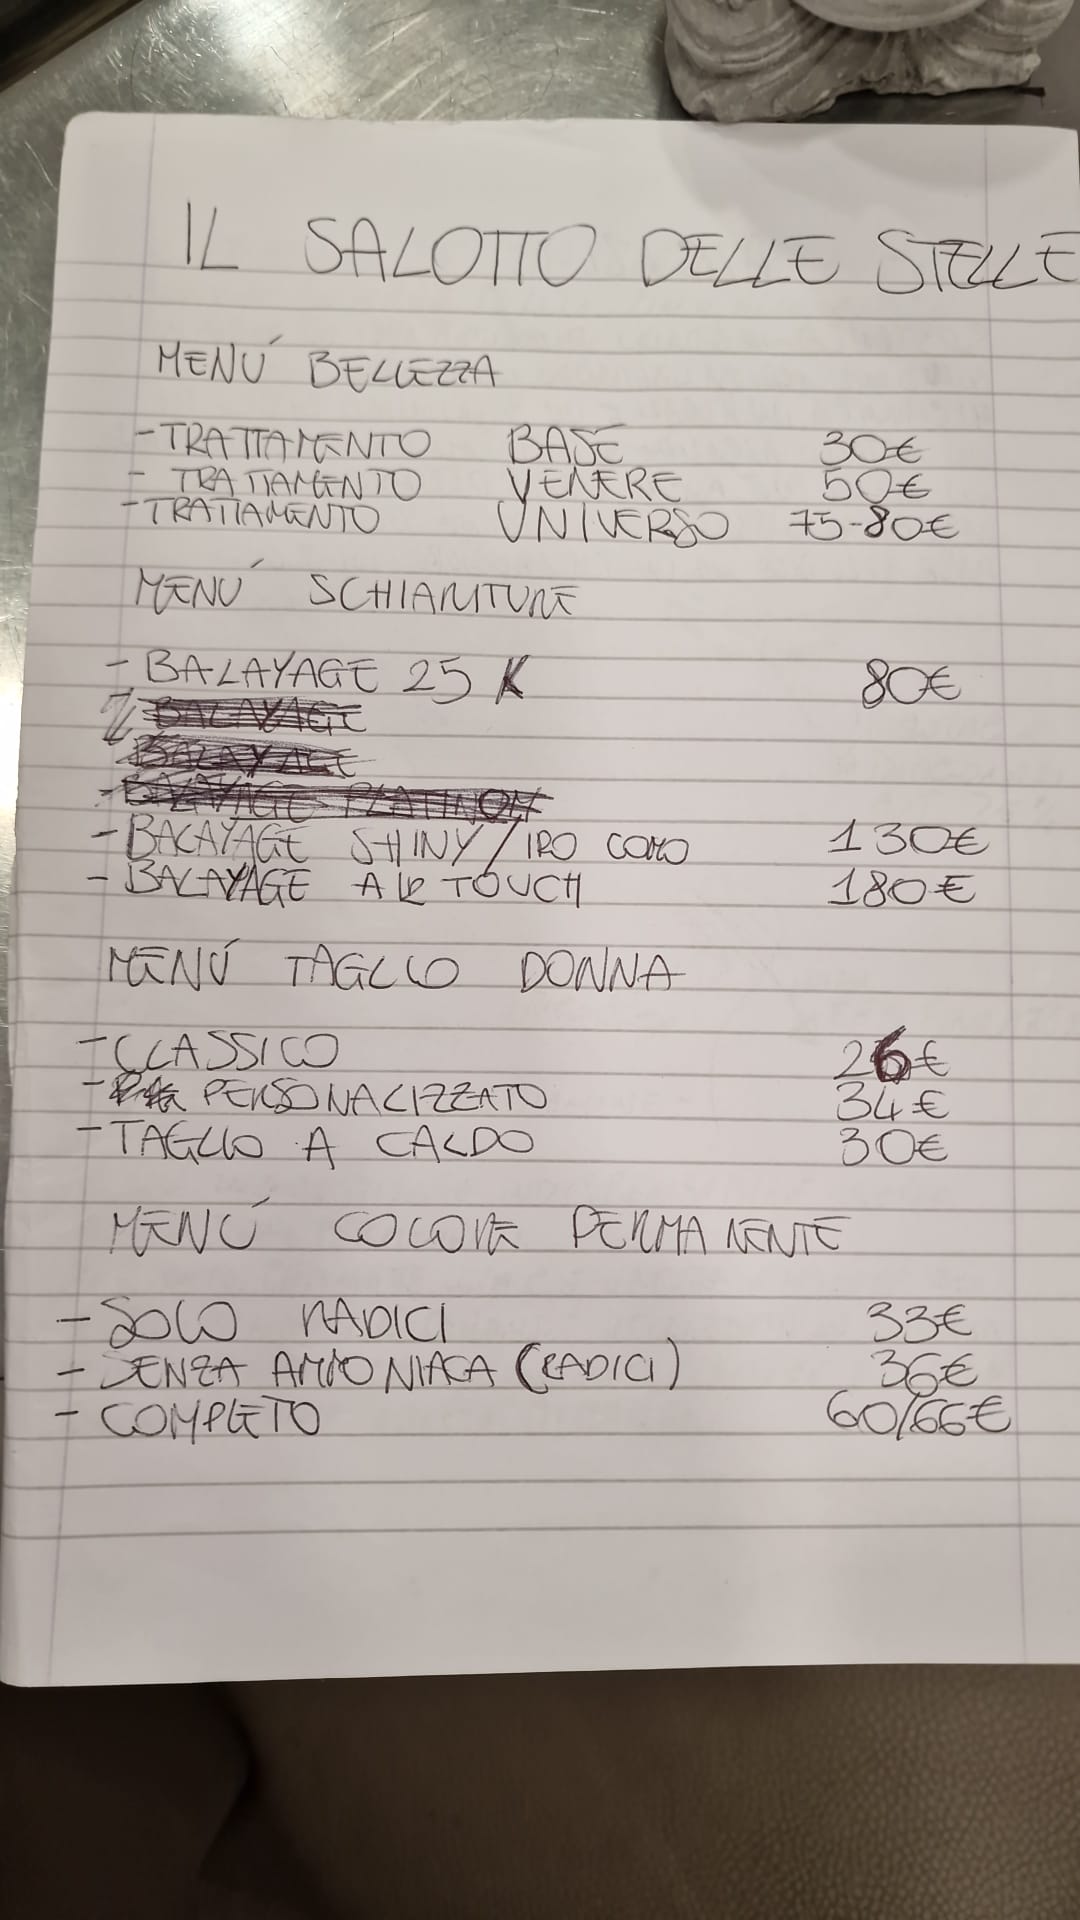 IL SALOTTO DELLE STELLE
MENÚ BELLEZZA
- TRATTAMENTO BASE 30€
- TRATTAMENTO VENERE 50€
- TRATTAMENTO UNIVERSO 75-80€
MENÚ SCHIARITURE
- BALAYAGE 25 K 80€
BALAYAGE
BALAYAGE
- BALAYAGE PLATINOM
- BALAYAGE SHINY/IRO 130€
- BALAYAGE AIR TOUCH 180€
MENÚ TAGLIO DONNA
- CLASSICO 26€
- PERSONALIZZATO 34€
- TAGLIO A CALDO 30€
MENÚ COLORE PERMANENTE
- SOLO RADICI 33€
- SENZA AMMONIACA (RADICI) 36€
- COMPLETO 60/66€